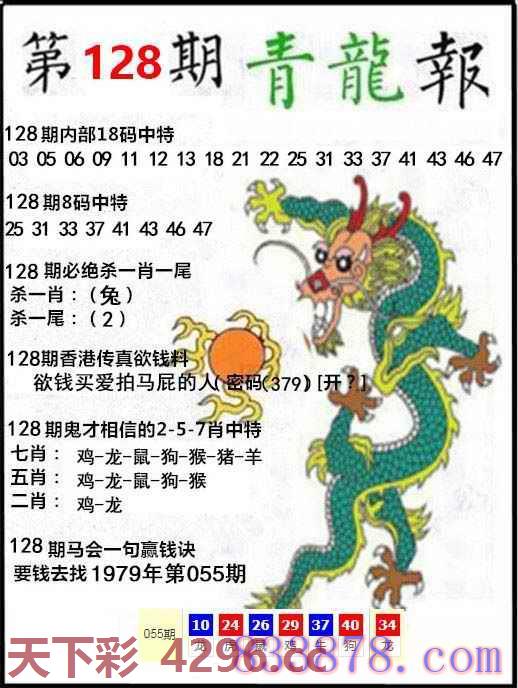 第128期青龍報
128期内部18码中特
03 05 06 09 11 12 13 18 21 22 25 31 33 37 41 43 46 47
128期8码中特
25 31 33 37 41 43 46 47
128期必绝杀一肖一尾
杀一肖：(兔)
杀一尾：(2)
128期香港传真欲钱料
欲钱买爱拍马屁的人(密码(379)[开?]
128期鬼才相信的2-5-7肖中特
七肖： 鸡-龙-鼠-狗-猴-猪-羊
五肖： 鸡-龙-鼠-狗-猴
二肖： 鸡-龙
128期马会一句赢钱诀
要钱去找1979年第055期
055期 10 24 26 29 37 40 34
龙 虎 鼠 鸡 牛 狗 龙
天下彩 4296.cc
838878.com